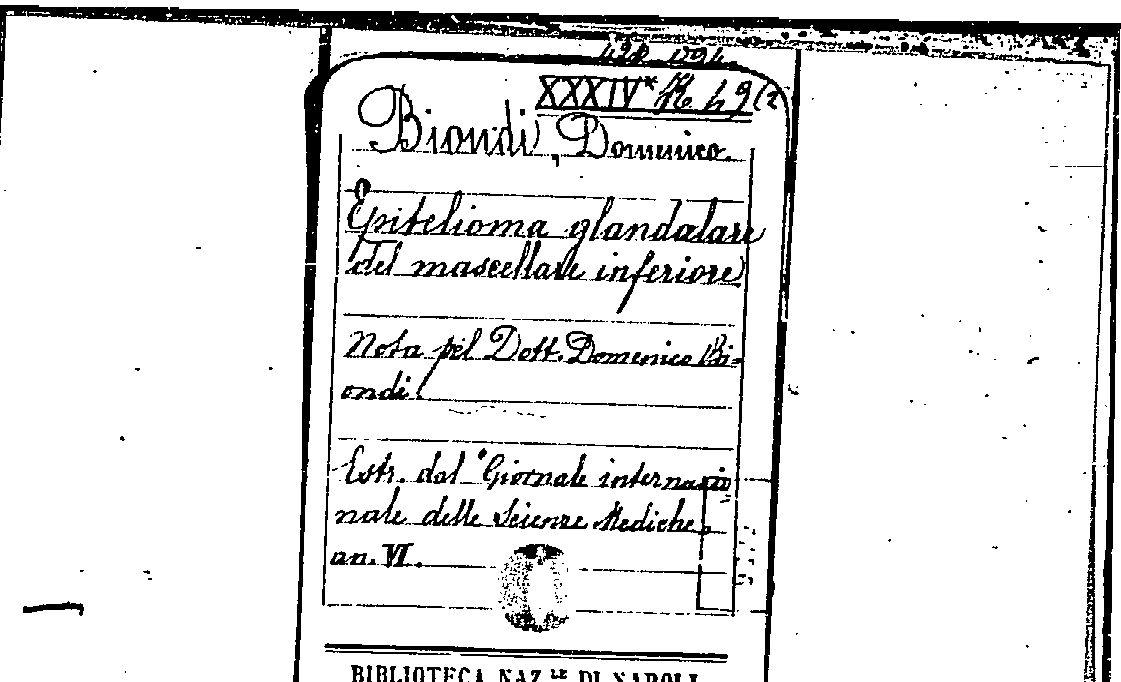 XXXIV*
Biondi, Domenico.
Epitelioma glandalare
del mascellare inferiore
Nota pel Dott. Domenico Bi-
ondi.
Estr. dal "Giornale internazio
nale delle Scienze Mediche,,
an. VI.
BIBLIOTECA NAZ.LE DI NAPOLI